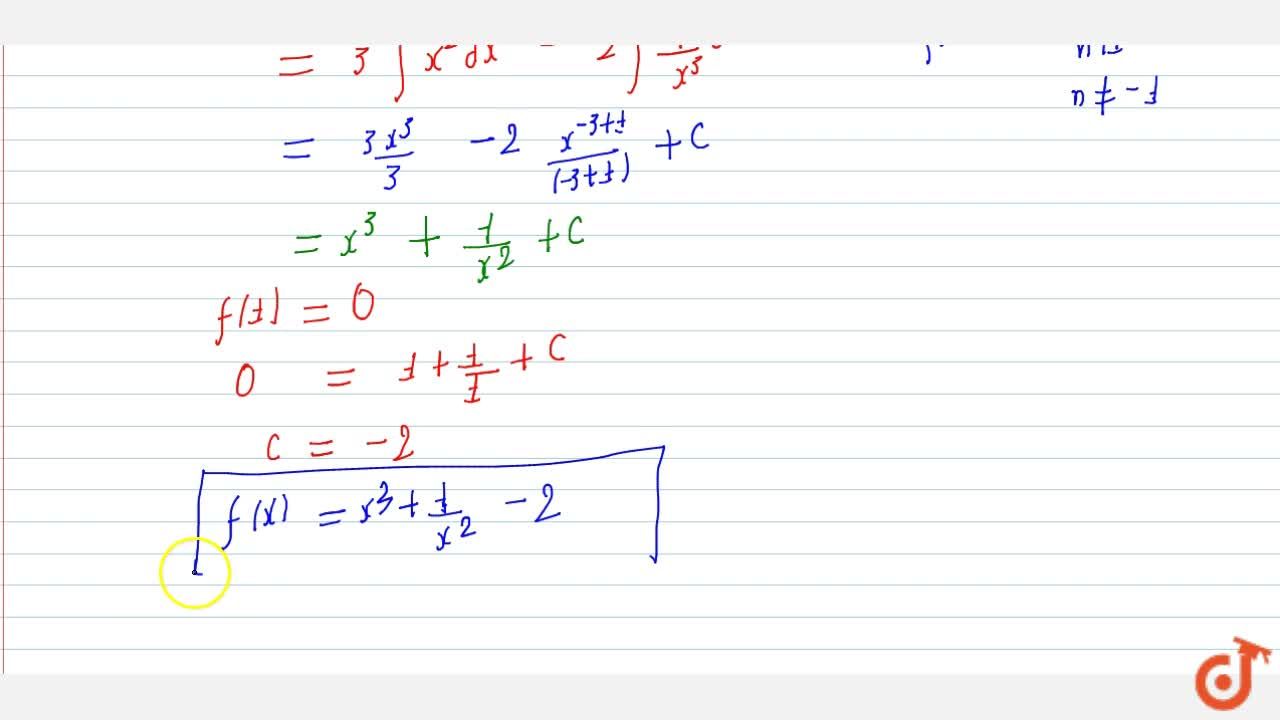 = 3 ∫ x² dx - 2 ∫ 1/x³
n ≠ -1
= 3x³/3 - 2 x^(-3+1)/(-3+1) + C
= x³ + 1/x² + C
f(1) = 0
0 = 1 + 1/1 + C
C = -2
f(x) = x³ + 1/x² - 2